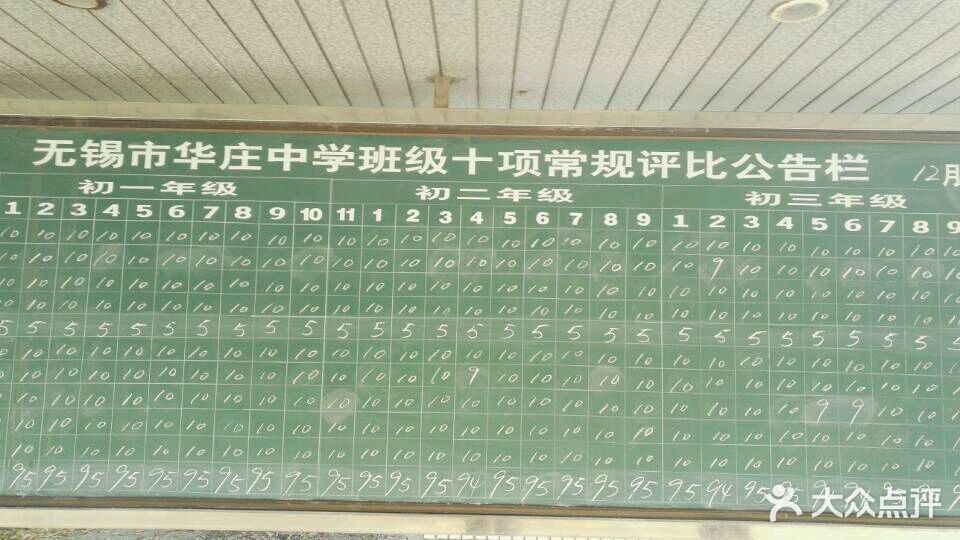 无锡市华庄中学班级十项常规评比公告栏 12月
初一年级 初二年级 初三年级
1 2 3 4 5 6 7 8 9 10 11 1 2 3 4 5 6 7 8 9 1 2 3 4 5 6 7 8 9
10 10 10 10 10 10 10 10 10 10 10 10 10 10 10 10 10 10 10 10 10 10 10 10 10 10 10 10
10 10 10 10 10 10 10 10 10 10 10 10 10 10 10 10 10 10 10 10 10 9 10 10 10 10 10 10
10 10 10 10 10 10 10 10 10 10 10 10 10 10 10 10 10 10 10 10 10 10 10 10 10 10 10 10
10 10 10 10 10 10 10 10 10 10 10 10 10 10 10 10 10 10 10 10 10 10 10 10 10 10 10 10
5 5 5 5 5 5 5 5 5 5 5 5 5 5 5 5 5 5 5 5 5 5 5 5 5 5 5 5
10 10 10 10 10 10 10 10 10 10 10 10 10 10 10 10 10 10 10 10 10 10 10 10 10 10 10 10
10 10 10 10 10 10 10 10 10 10 10 10 10 10 9 10 10 10 10 10 10 10 10 10 10 10 10 10
10 10 10 10 10 10 10 10 10 10 10 10 10 10 10 10 10 10 10 10 10 10 10 10 9 9 10 10
10 10 10 10 10 10 10 10 10 10 10 10 10 10 10 10 10 10 10 10 10 10 10 10 10 10 10 10
10 10 10 10 10 10 10 10 10 10 10 10 10 10 10 10 10 10 10 10 10 10 10 10 10 10 10 10
95 95 95 95 95 95 95 95 95 95 95 95 95 95 94 95 95 95 95 95 95 94 95
大众点评